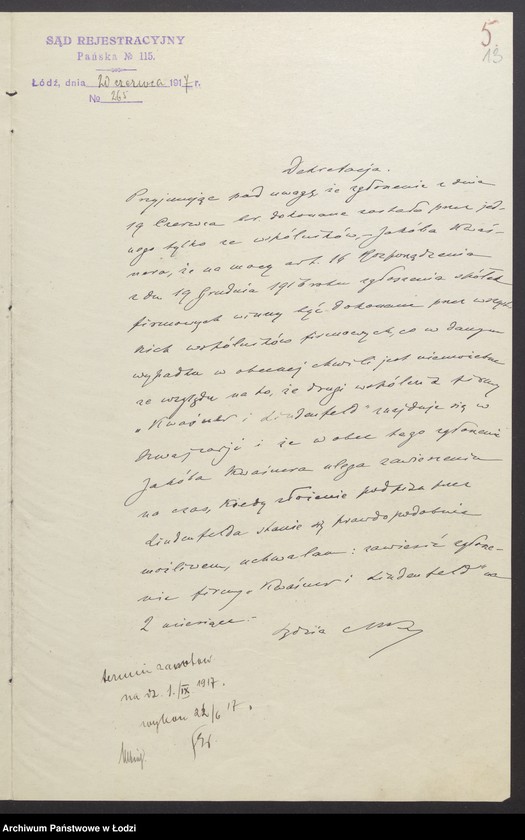 5
13
SĄD REJESTRACYJNY
Pańska № 115.
Łódź, dnia 20 czerwca 1917 r.
№ 265
Dekretacja.
Przyjmując pod uwagę że zgłoszenie z dnia
19 Czerwca br. dokonane zostało przez jed-
nego tylko ze wspólników, – Jakóba Kwaś-
nera, że na mocy art. 16 Rozporządzenia
z dn. 19 Grudnia 1916 roku zgłoszenia spółek
firmowych winny być dokonane przez wszyst-
kich wspólników firmowych, co w danym
wypadku w obecnej chwili jest niemożliwe
ze względu na to, że drugi wspólnik firmy
„Kwaśner i Lindenfeld" znajduje się w
Szwajcarji i że wobec tego zgłoszenie
Jakóba Kwaśnera ulega zawieszeniu
na czas, kiedy złożenie podpisu przez
Lindenfelda stanie się prawdopodobnie
możliwem, uchwalam: zawiesić zgłosze-
nie firmy „Kwaśner i Lindenfeld" na
2 miesiące. –
Sędzia
termin
na dz. 1./IX 1917.
wykon 22/6 17.
Archiwum Państwowe w Łodzi